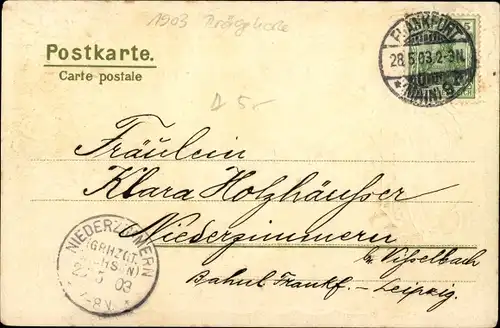 1903 Prägekarte
Postkarte.
Carte postale
FRANKFURT
28.5.03.2-3N.
(MAIN) 9
5
Fräulein
Klara Holzhäußer
Niederzimmern
b. Visselbach
Bahnl Frankf. – Leipzig.
NIEDERZIMMERN
(GRHZGT.
SACHSEN)
5 03
7-8V.